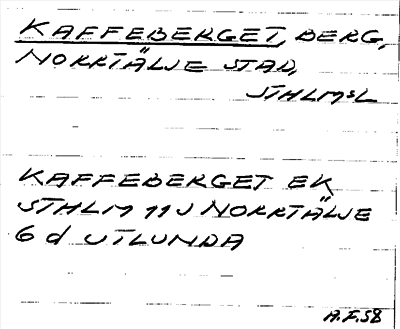 KAFFEBERGET, BERG,
NORRTÄLJE STAD,
STHLMSL
KAFFEBERGET EK
STHLM 11J NORRTÄLJE
6 d UTLUNDA
A.F.58